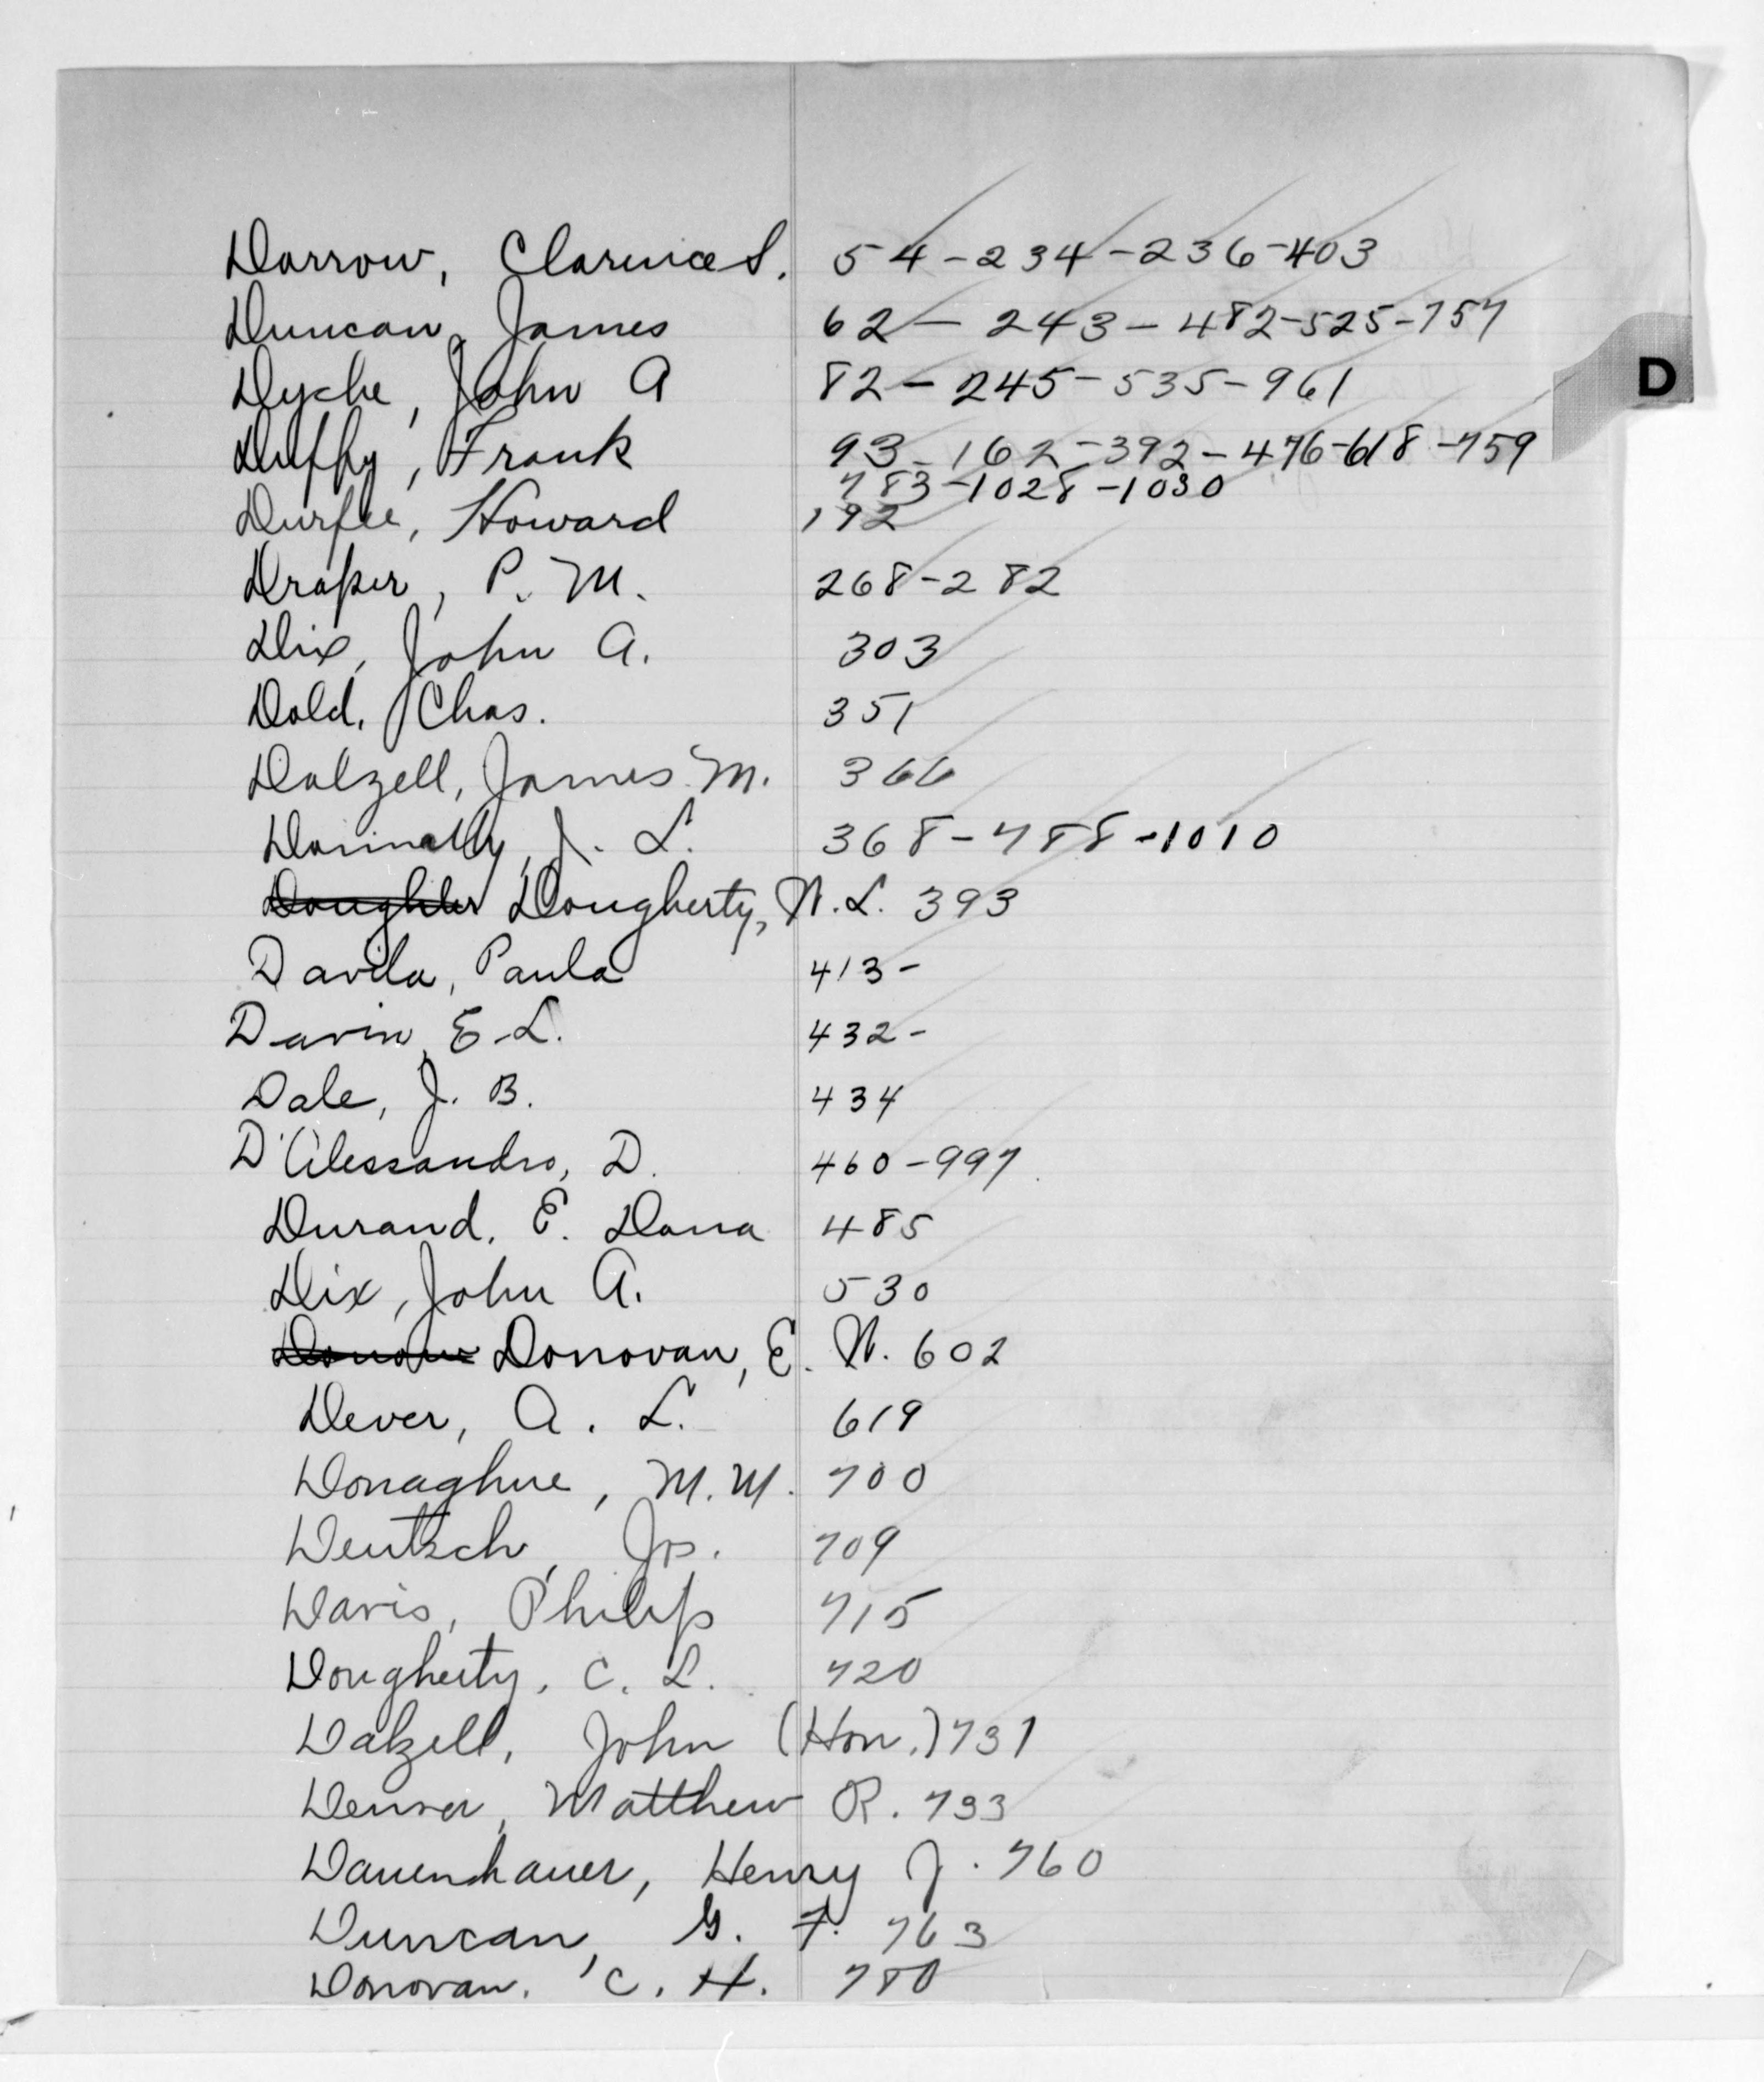 Darrow, Clarence S. 54-234-236-403
Duncan, James 62-243-482-525-757
D
Dyche, John A 82-245-535-961
Duffy, Frank 93-162-392-476-618-759
783-1028-1030
Durfee, Howard 192
Draper, P. M. 268-282
Dix, John A. 303
Dold, Chas. 351
Dalzell, James M. 366
Donnelly, J. L. 368-788-1010
Dougherty, N. L. 393
Davila, Paula 413-
Davin, E. L. 432-
Dale, J. B. 434
D'Alessandro, D. 460-997
Durand, E. Dana 485
Dix, John A. 530
Donovan, E. N. 602
Dever, A. L. 619
Donaghue, M. M. 700
Deutsch, Jos. 709
Davis, Philip 715
Dougherty, C. L. 720
Dalzell, John (Hon.) 731
Denver, Matthew R. 733
Dauenhauer, Henry J. 760
Duncan, G. F. 763
Donovan, C. H. 780